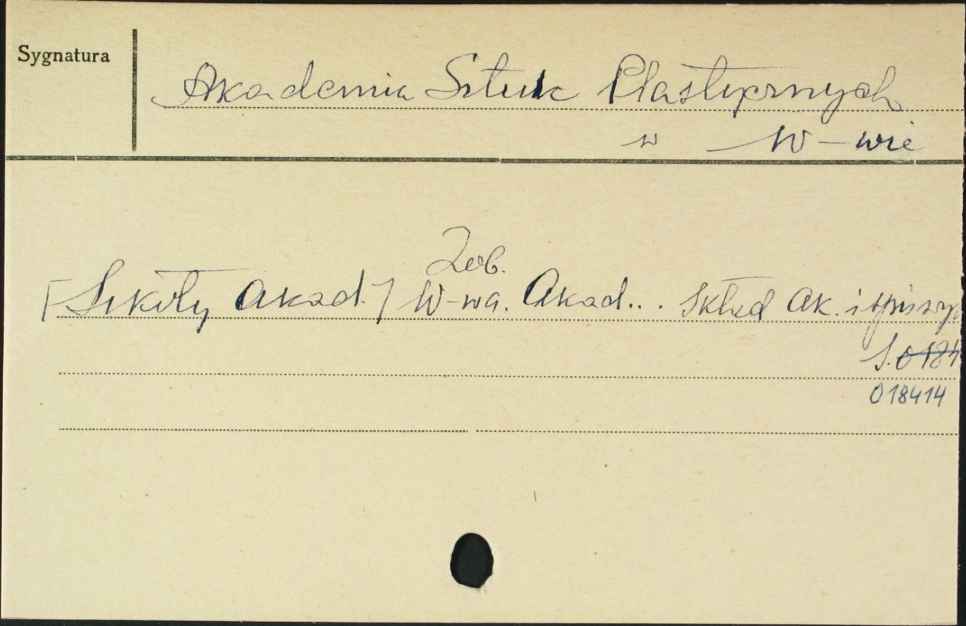 Sygnatura
Akademia Sztuk Plastycznych
w W-wie
Zob.
[Szkoły Akad.] W-wa. Akad... Skład Ak. i spis wy
S. 0184
018414